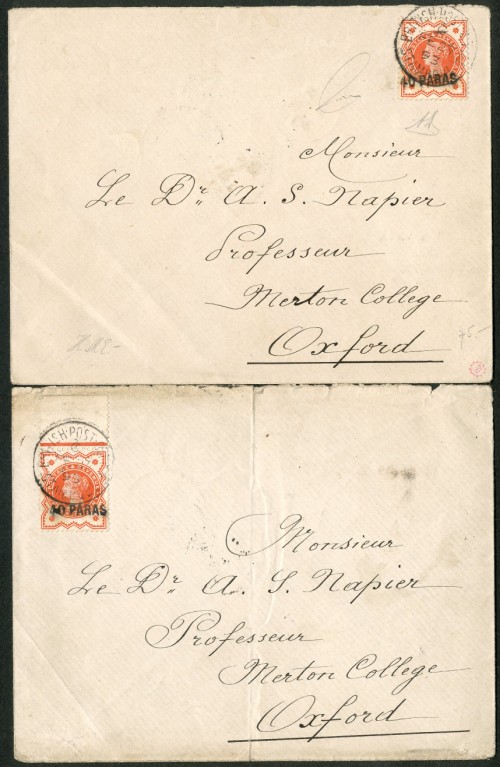 BRITISH·POST
40 PARAS
11
Monsieur
Le Dr A. S. Napier
Professeur
Merton College
Oxford
75-
BRITISH·POST
40 PARAS
Monsieur
Le Dr A. S. Napier
Professeur
Merton College
Oxford